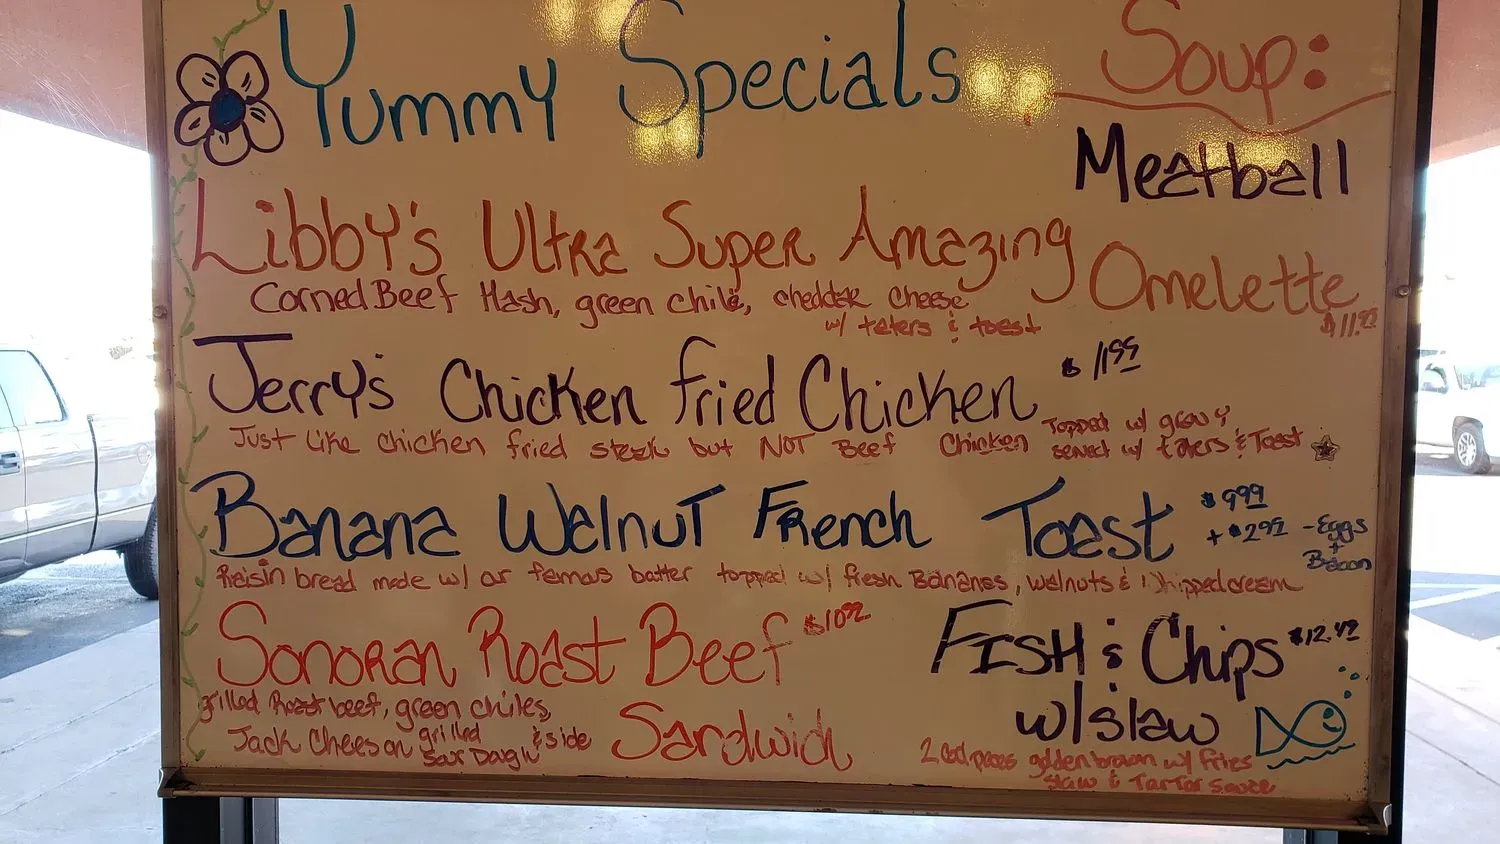 Yummy Specials
Soup:
Meatball
Libby's Ultra Super Amazing Omelette
$11.99
Corned Beef Hash, green chile, cheddar cheese
w/ taters & toast
Jerry's Chicken Fried Chicken $11.99
Just Like chicken fried steak but NOT Beef Chicken Topped w/ gravy
served w/ taters & Toast
Banana Walnut French Toast $9.99
+ $2.99 - Eggs
+
Bacon
Raisin bread made w/ our famous batter topped w/ fresh Bananas, walnuts & whipped cream
Sonoran Roast Beef $10.99
Sandwich
grilled Roast beef, green chiles,
Jack Chees on grilled
Sour Dough & side
Fish & Chips $12.49
w/slaw
2 Cod pieces golden brown w/ fries
slaw & Tartar sauce